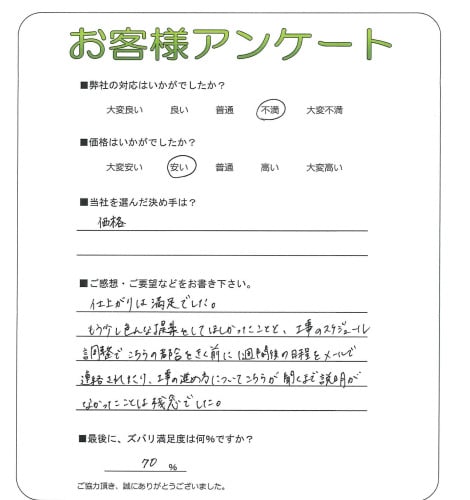 お客様アンケート
■弊社の対応はいかがでしたか？
大変良い 良い 普通 不満 大変不満
■価格はいかがでしたか？
大変安い 安い 普通 高い 大変高い
■当社を選んだ決め手は？
価格
■ご感想・ご要望などをお書き下さい。
仕上がりは満足でした。
もう少し色んな提案をしてほしかったことと、工事のスケジュール
調整でこちらの都合をきく前に1週間後の日程をメールで
連絡されたり、工事の進め方についてこちらが聞くまで説明が
なかったことは残念でした。
■最後に、ズバリ満足度は何％ですか？
70 ％
ご協力頂き、誠にありがとうございました。